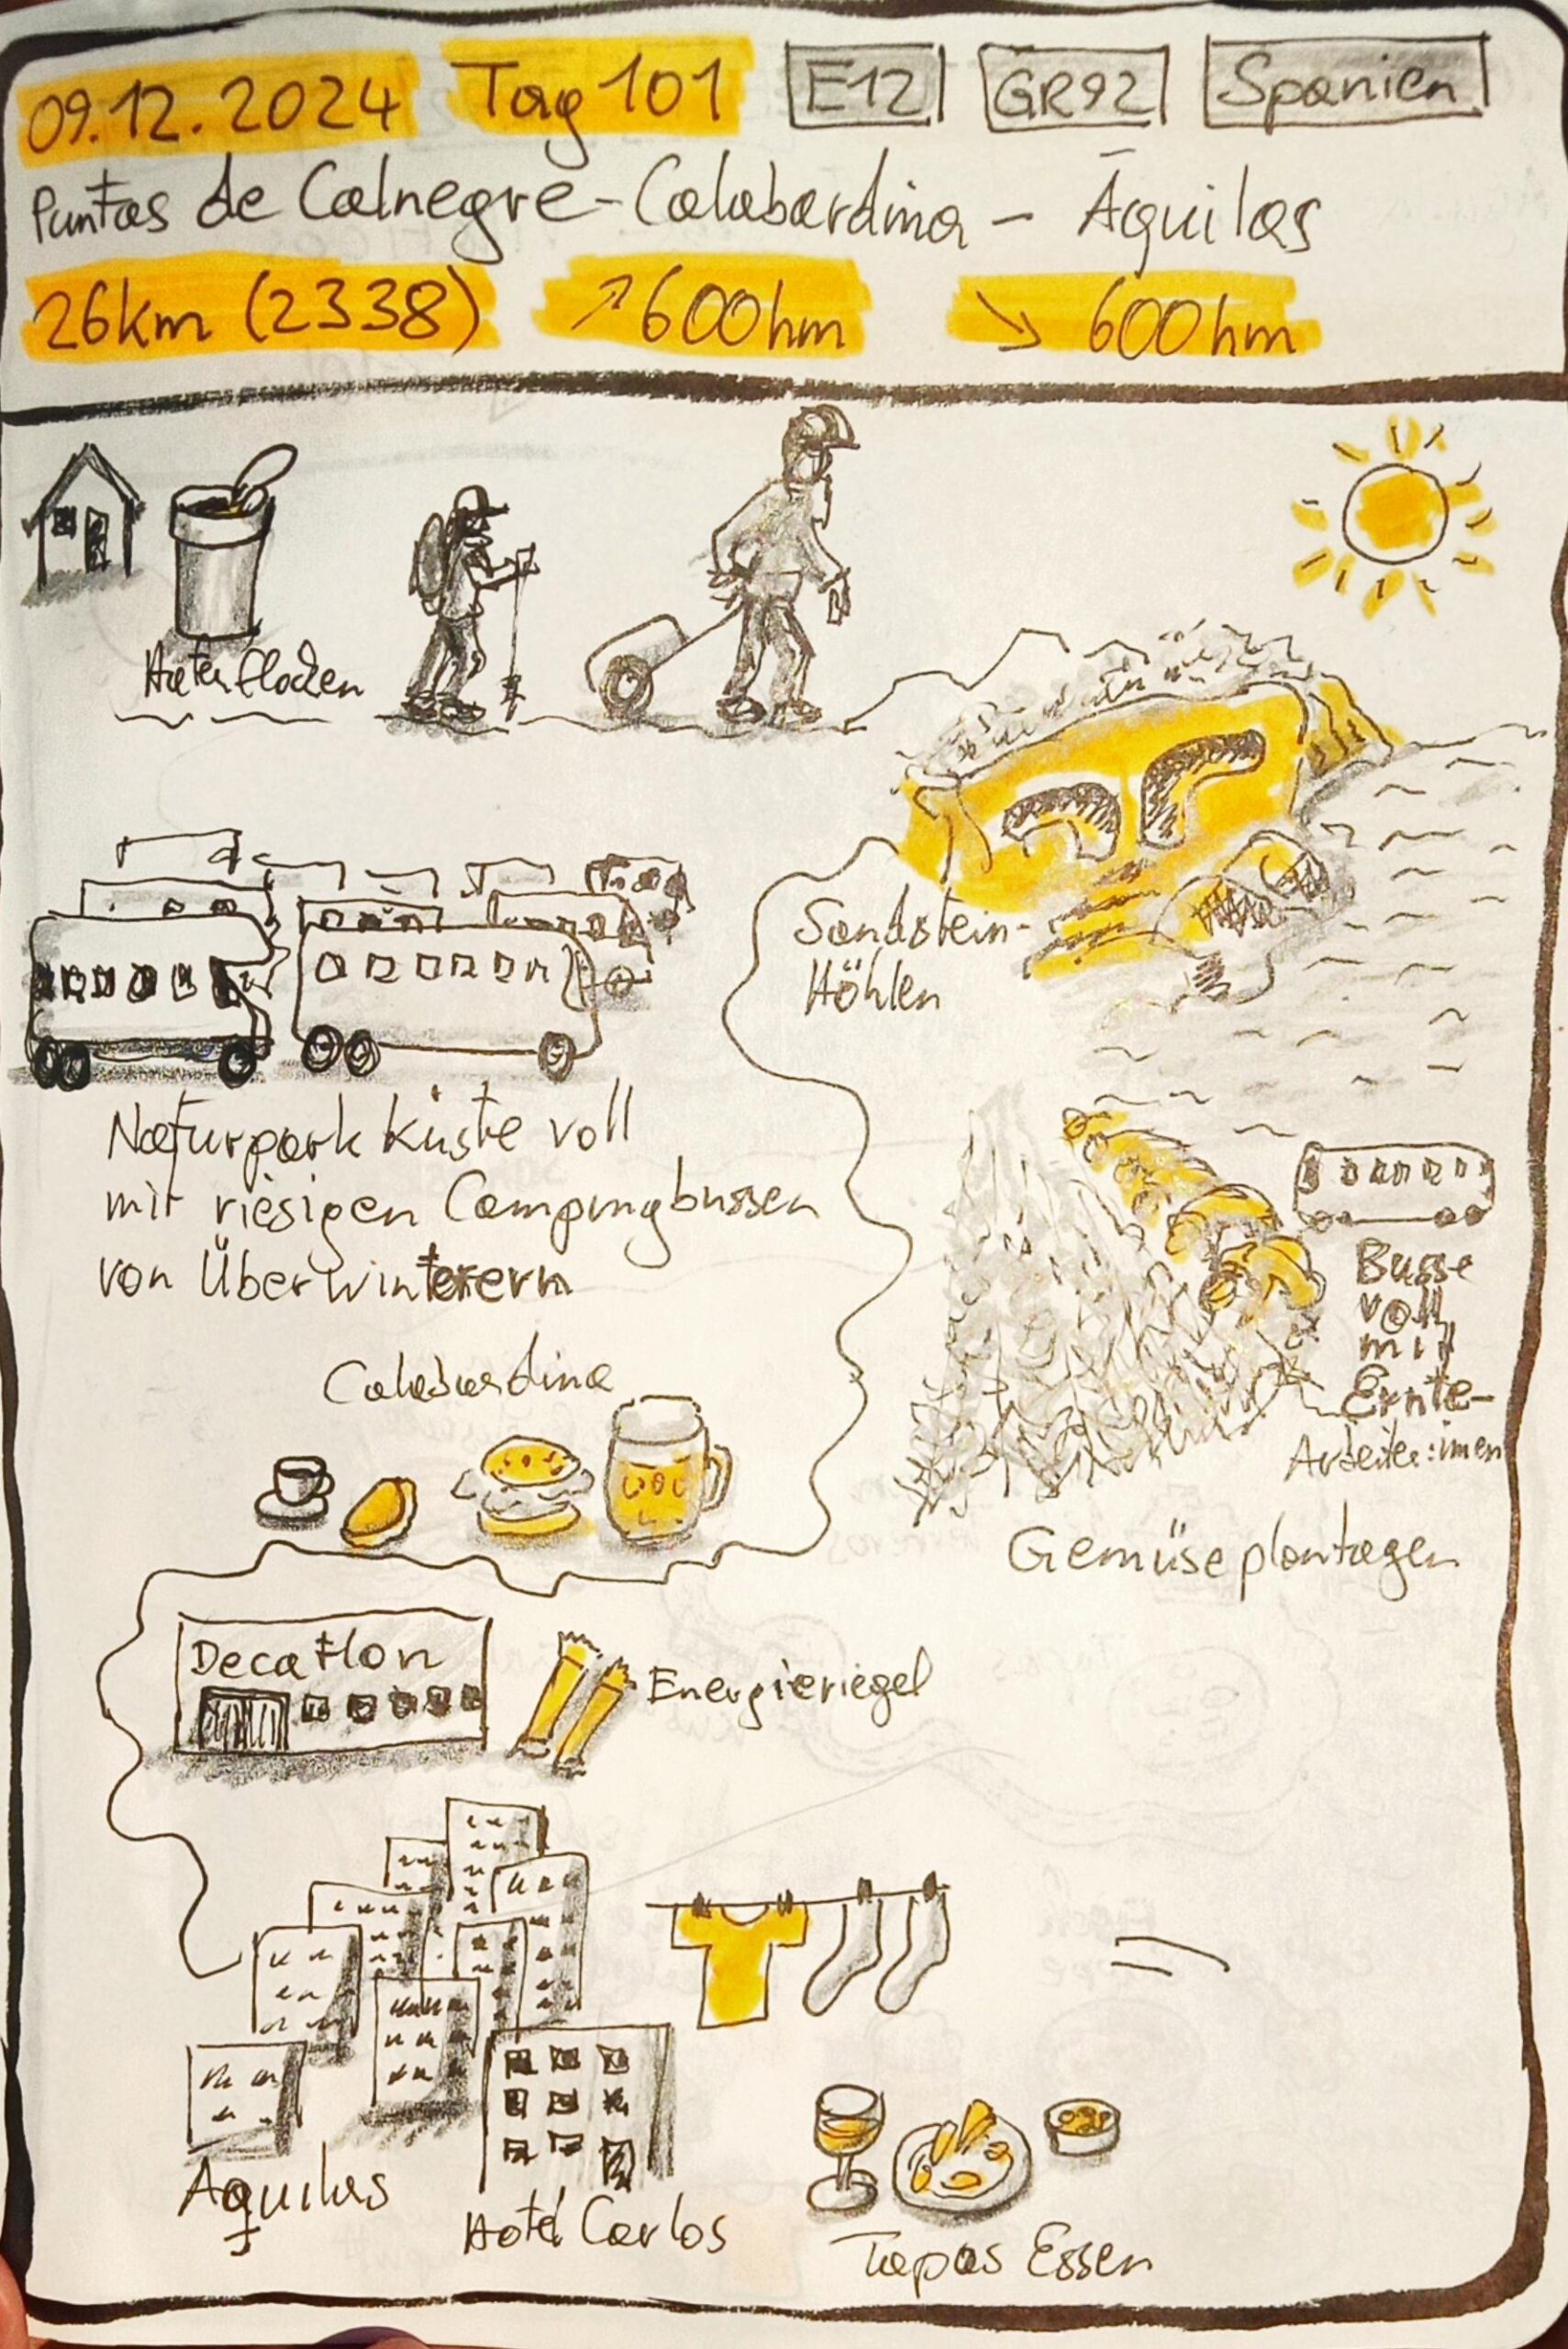 09.12.2024 Tag 101 E12 GR92 Spanien
Puntas de Calnegre - Calabardina - Águilas
26km (2338) ↗600hm ↘ 600hm
Haferflocken
Sandstein-
Höhlen
Naturpark Küste voll
mit riesigen Campingbussen
von Überwinterern
Busse
voll
mit
Ernte-
Arbeiter:innen
Gemüseplantagen
Calabardina
Decatlon
Energieriegel
Aguilas
Hotel Carlos
Tapas Essen